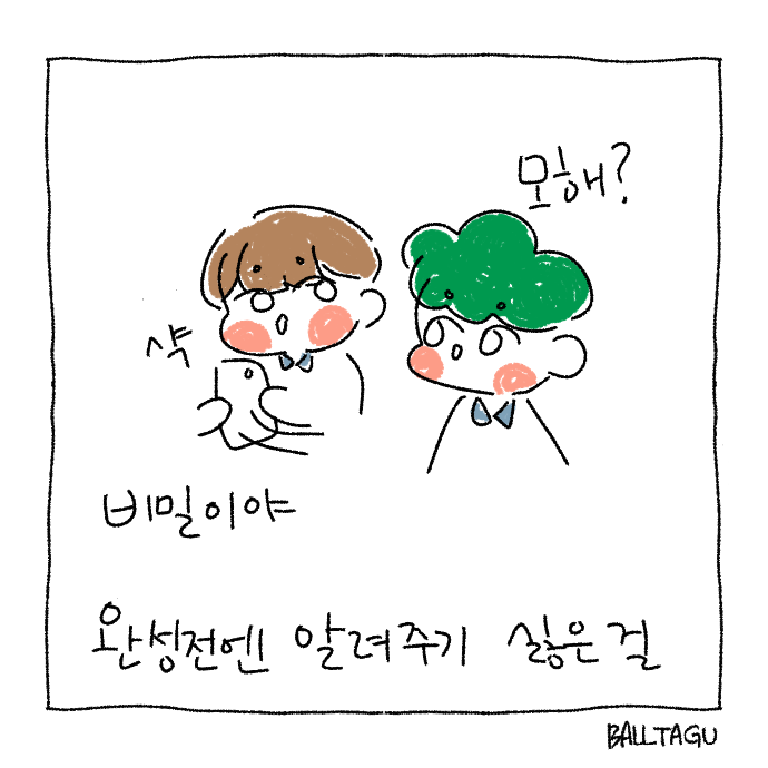 모해?
샥
비밀이야
완성전엔 알려주기 싫은걸
BALLTAGU